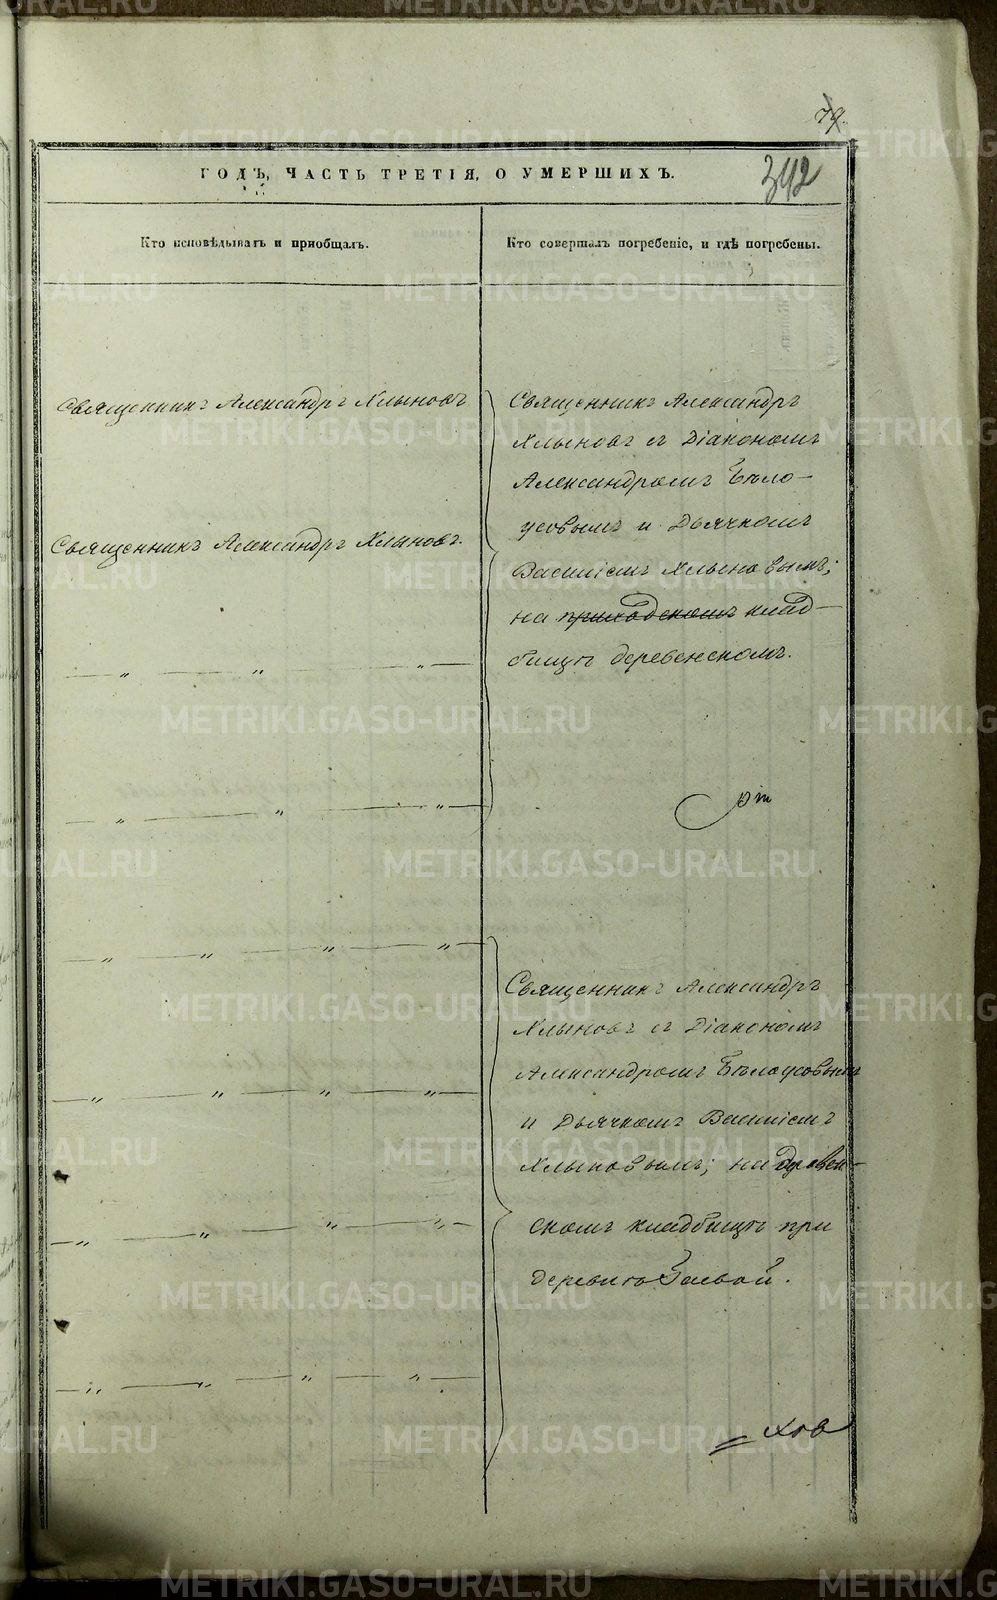 79.
342
ГОДЪ, ЧАСТЬ ТРЕТІЯ, О УМЕРШИХЪ.
Кто исповѣдывалъ и пріобщалъ.
Кто совершалъ погребеніе, и гдѣ погребены.
Священникъ Александръ Хлыновъ
Священникъ Александръ Хлыновъ.
" " "
" " "
" " " "
" " " "
" " " "
" " " "
Священникъ Александръ
Хлыновъ съ Діакономъ
Александромъ Бѣло-
усовымъ и Дьячкомъ
Василіемъ Хлыновымъ;
на приходскомъ клад-
бищѣ деревенскомъ.
Священникъ Александръ
Хлыновъ съ Діакономъ
Александромъ Бѣлоусовымъ
и Дьячкомъ Василіемъ
Хлыновымъ; на деревен-
скомъ кладбищѣ при
деревнѣ
METRIKI.GASO-URAL.RU